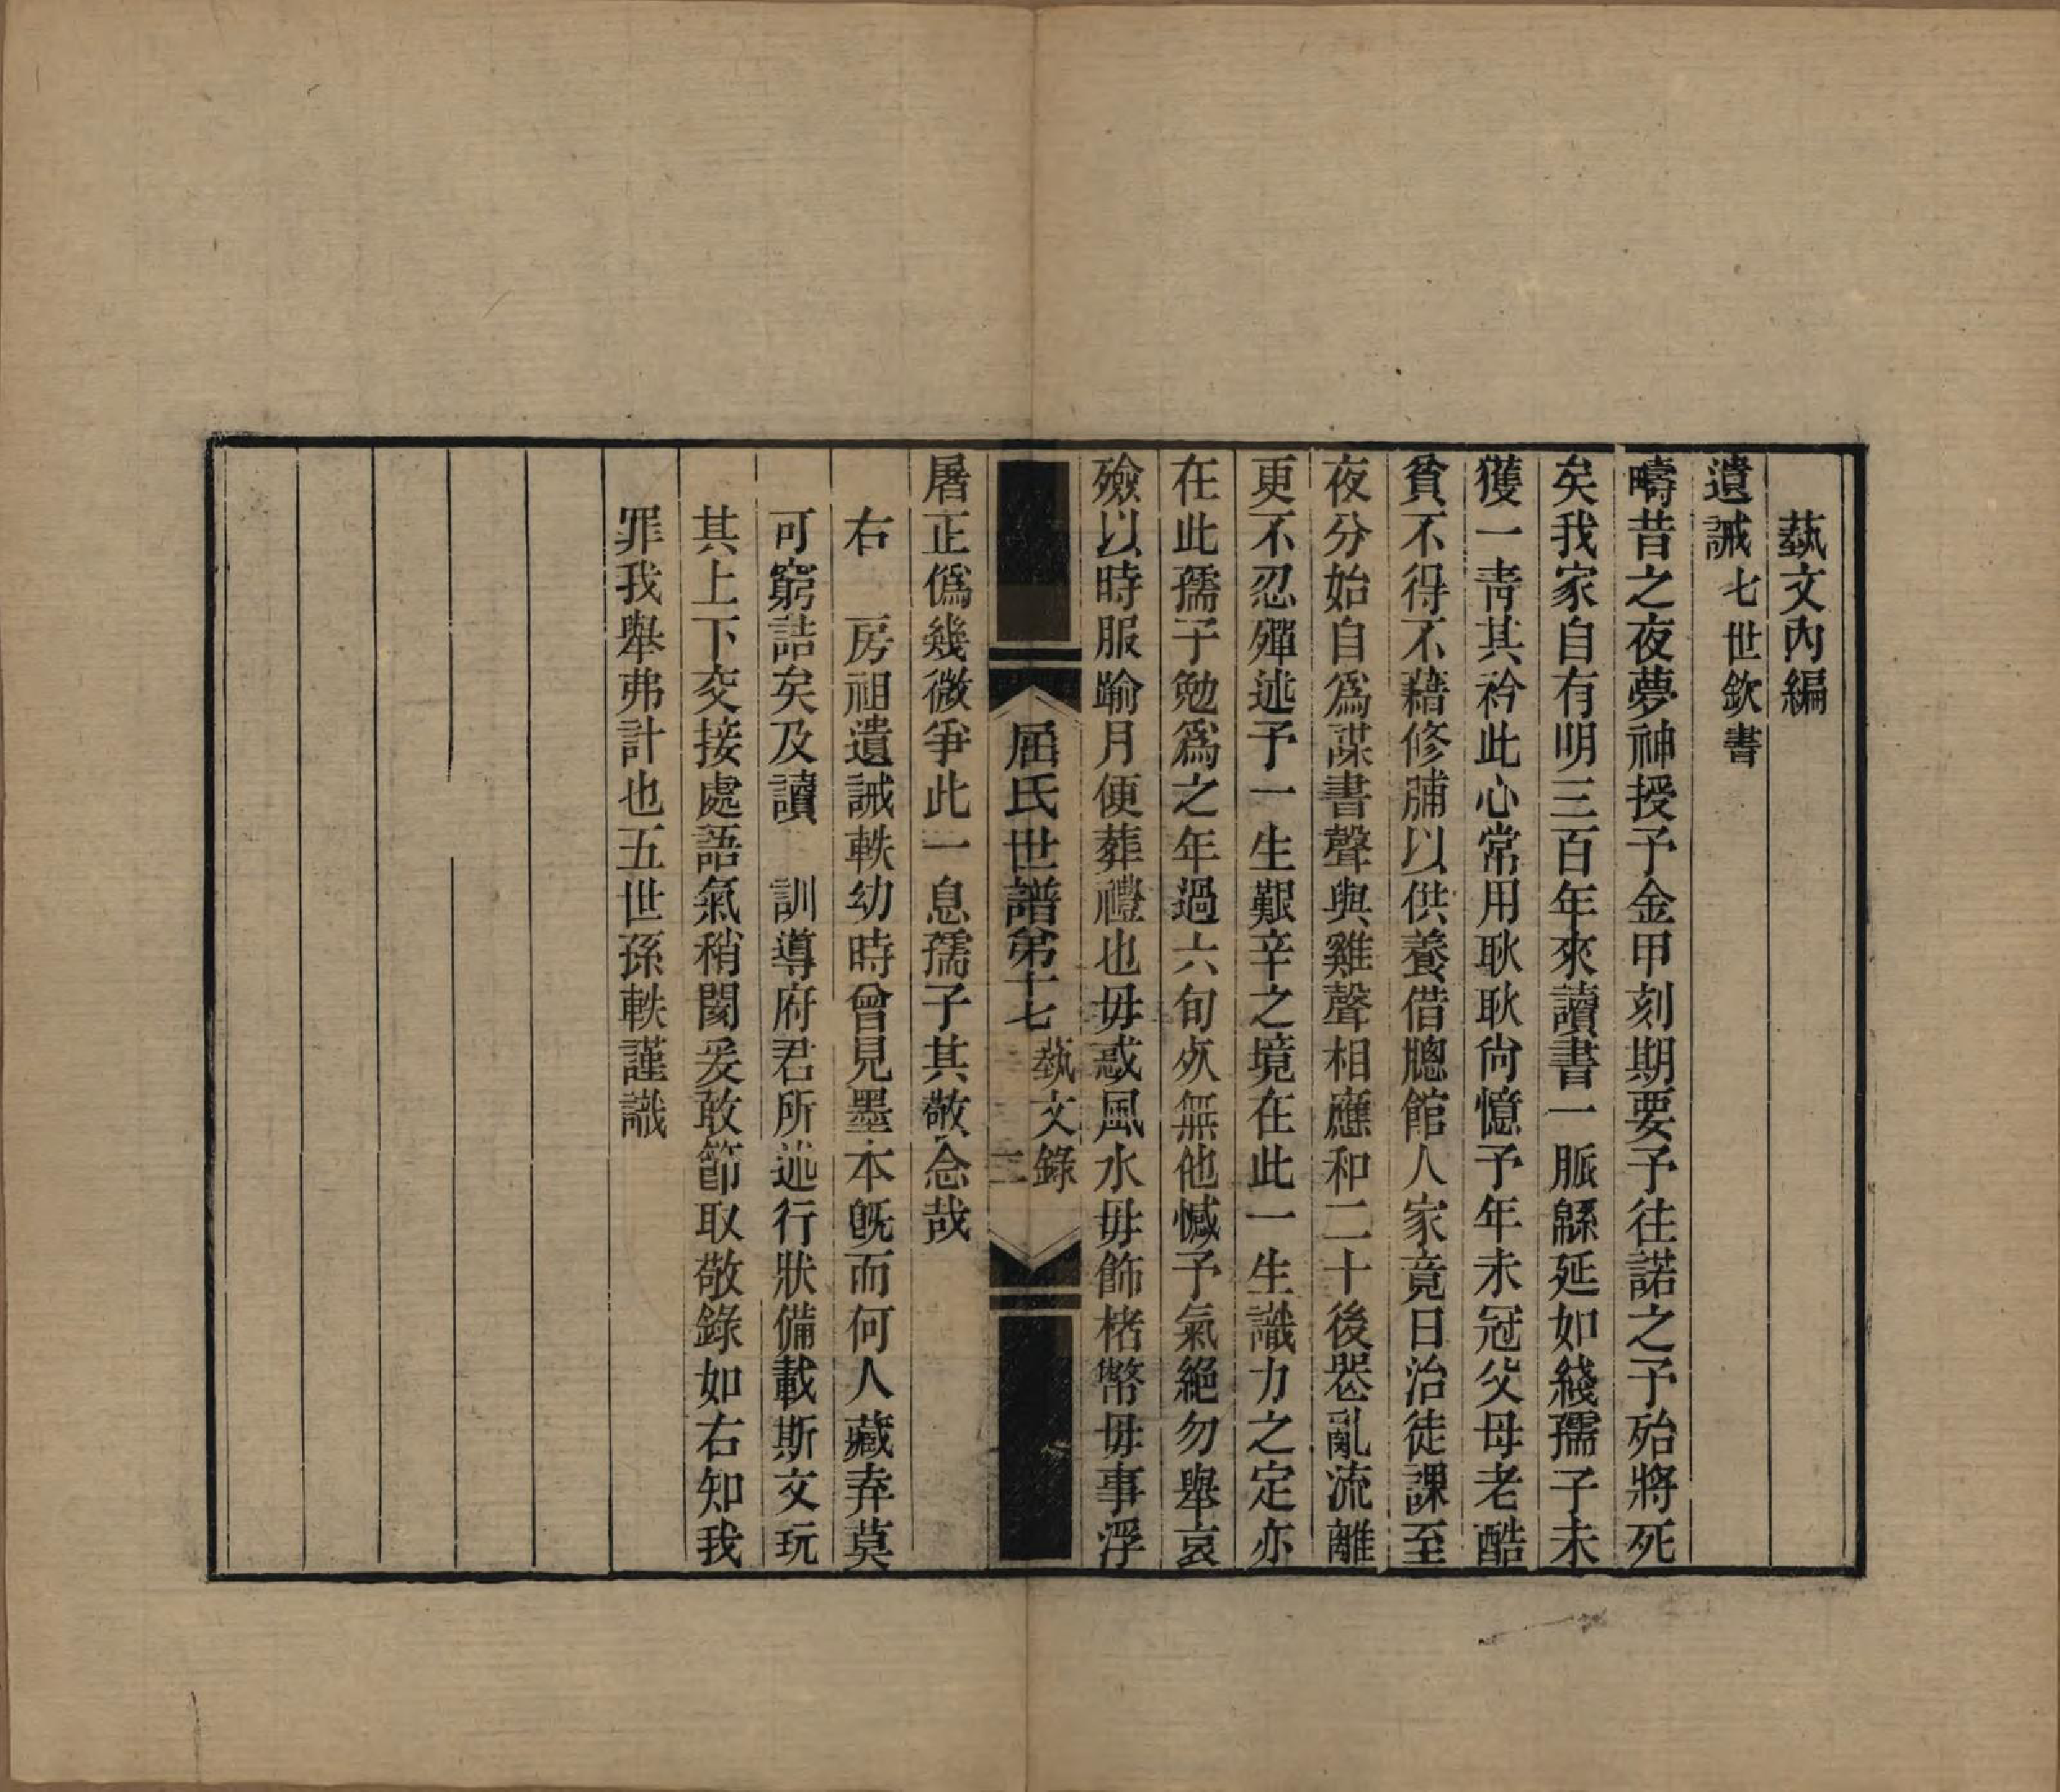 藝文內編
遺誡七世欽書
疇昔之夜夢神授予金甲刻期要予往諾之予殆將死
矣我家自有明三百年來讀書一脈緜延如綫孺子未
獲一靑其衿此心常用耿耿尙憶予年未冠父母老酷
貧不得不藉修脯以供養借牕館人家竟日治徒課至
夜分始自爲謀書聲與雞聲相應和二十後罹亂流離
更不忍殫述予一生艱辛之境在此一生識力之定亦
在此孺子勉爲之年過六旬歿無他憾予氣絕勿舉哀
殮以時服踰月便葬禮也毋惑風水毋飾楮幣毋事浮
屈氏世譜第十七 藝文錄 二
屠正僞幾微爭此一息孺子其敬念哉
右 房祖遺誡軼幼時曾見墨本旣而何人藏弆莫
可窮詰矣及讀 訓導府君所述行狀備載斯文玩
其上下交接處語氣稍閡爰敢節取敬錄如右知我
罪我舉弗計也五世孫軼謹識